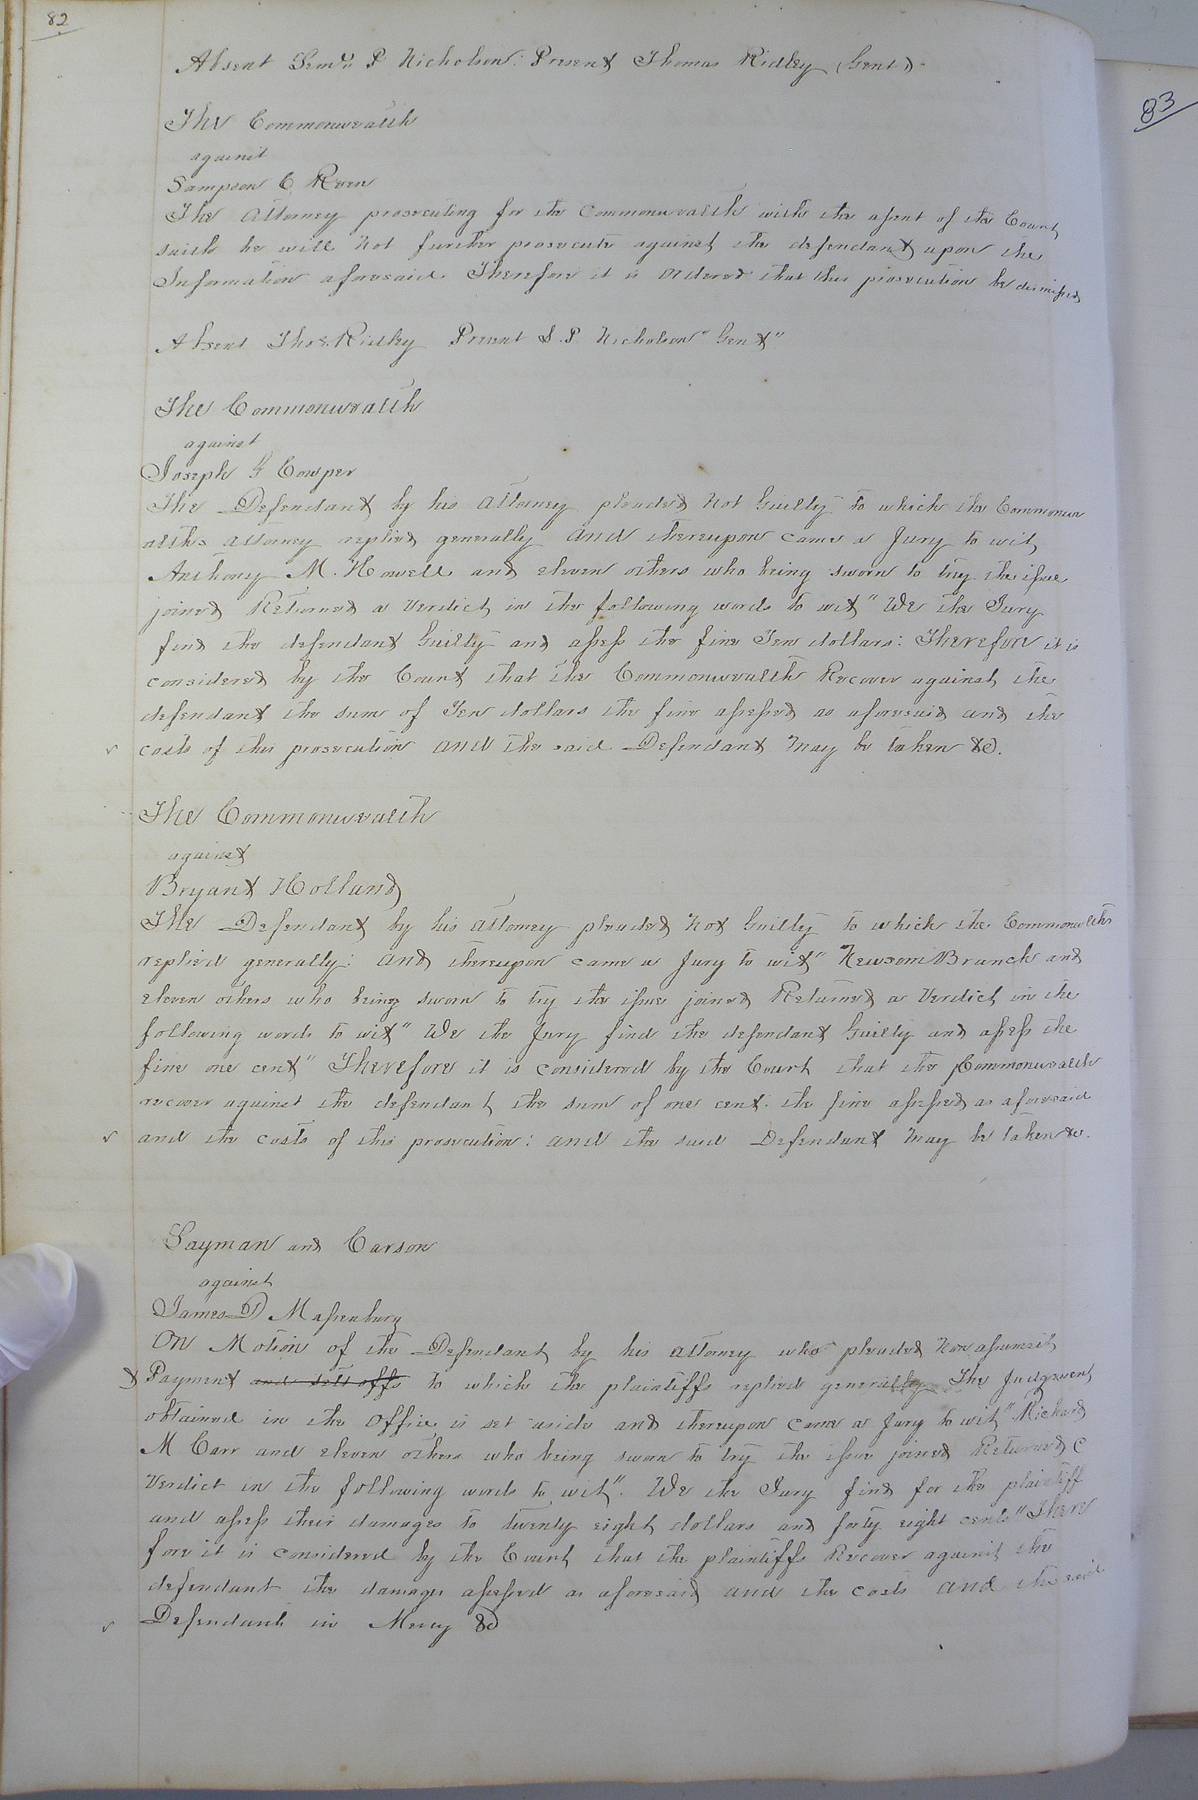 82
83
Absent P Nicholson: Present Thomas Ridley (Gent)
The Commonwealth
against
Sampson C Reese
The Attorney prosecuting for the Commonwealth with the assent of the Court
saith he will not further prosecute against the defendant upon the
Information aforesaid Therefore it is ordered that this prosecution be dismissed
Absent Thos. Ridley Present S. P. Nicholson "Gent"
The Commonwealth
against
Joseph G Cowper
The Defendant by his Attorney pleaded Not Guilty to which the Commonw
ealths Attorney replied generally and thereupon came a Jury to wit
Anthony M. Howell and eleven others who being sworn to try the issue
joined Returned a Verdict in the following words to wit "We the Jury
find the defendant Guilty and assess the fine Ten dollars: Therefore it is
considered by the Court that the Commonwealth Recover against the
defendant the sum of Ten dollars the fine assessed as aforesaid and the
costs of this prosecution and the said Defendant may be taken &c.
The Commonwealth
against
Bryant Holland
The Defendant by his Attorney pleaded Not Guilty to which the Commonwlths
replied generally: and thereupon came a Jury to wit "Newsom Branch and
eleven others who being sworn to try the issue joined Returned a Verdict in the
following words to wit "We the Jury find the defendant Guilty and assess the
fine one cent" Therefore it is considered by the Court that the Commonwealth
recover against the defendant the sum of one cent the fine assessed as aforesaid
and the costs of this prosecution: and the said Defendant may be taken &c.
Sayman and Carson
against
James D Massenburg
On Motion of the Defendant by his Attorney who pleaded Non assumsit
& Payment and sett offs to which the plaintiffs replied generally The Judgment
obtained in the office is set aside and thereupon came a Jury to wit "Richard
M Carr and eleven others who being sworn to try the issue joined Returned a
Verdict in the following words to wit". We the Jury find for the plaintiff
and assess their damages to twenty eight dollars and forty eight cents" There
fore it is considered by the Court that the plaintiffs Recover against the
defendant the damages assessed as aforesaid and the costs and the said
Defendant in Mercy &c